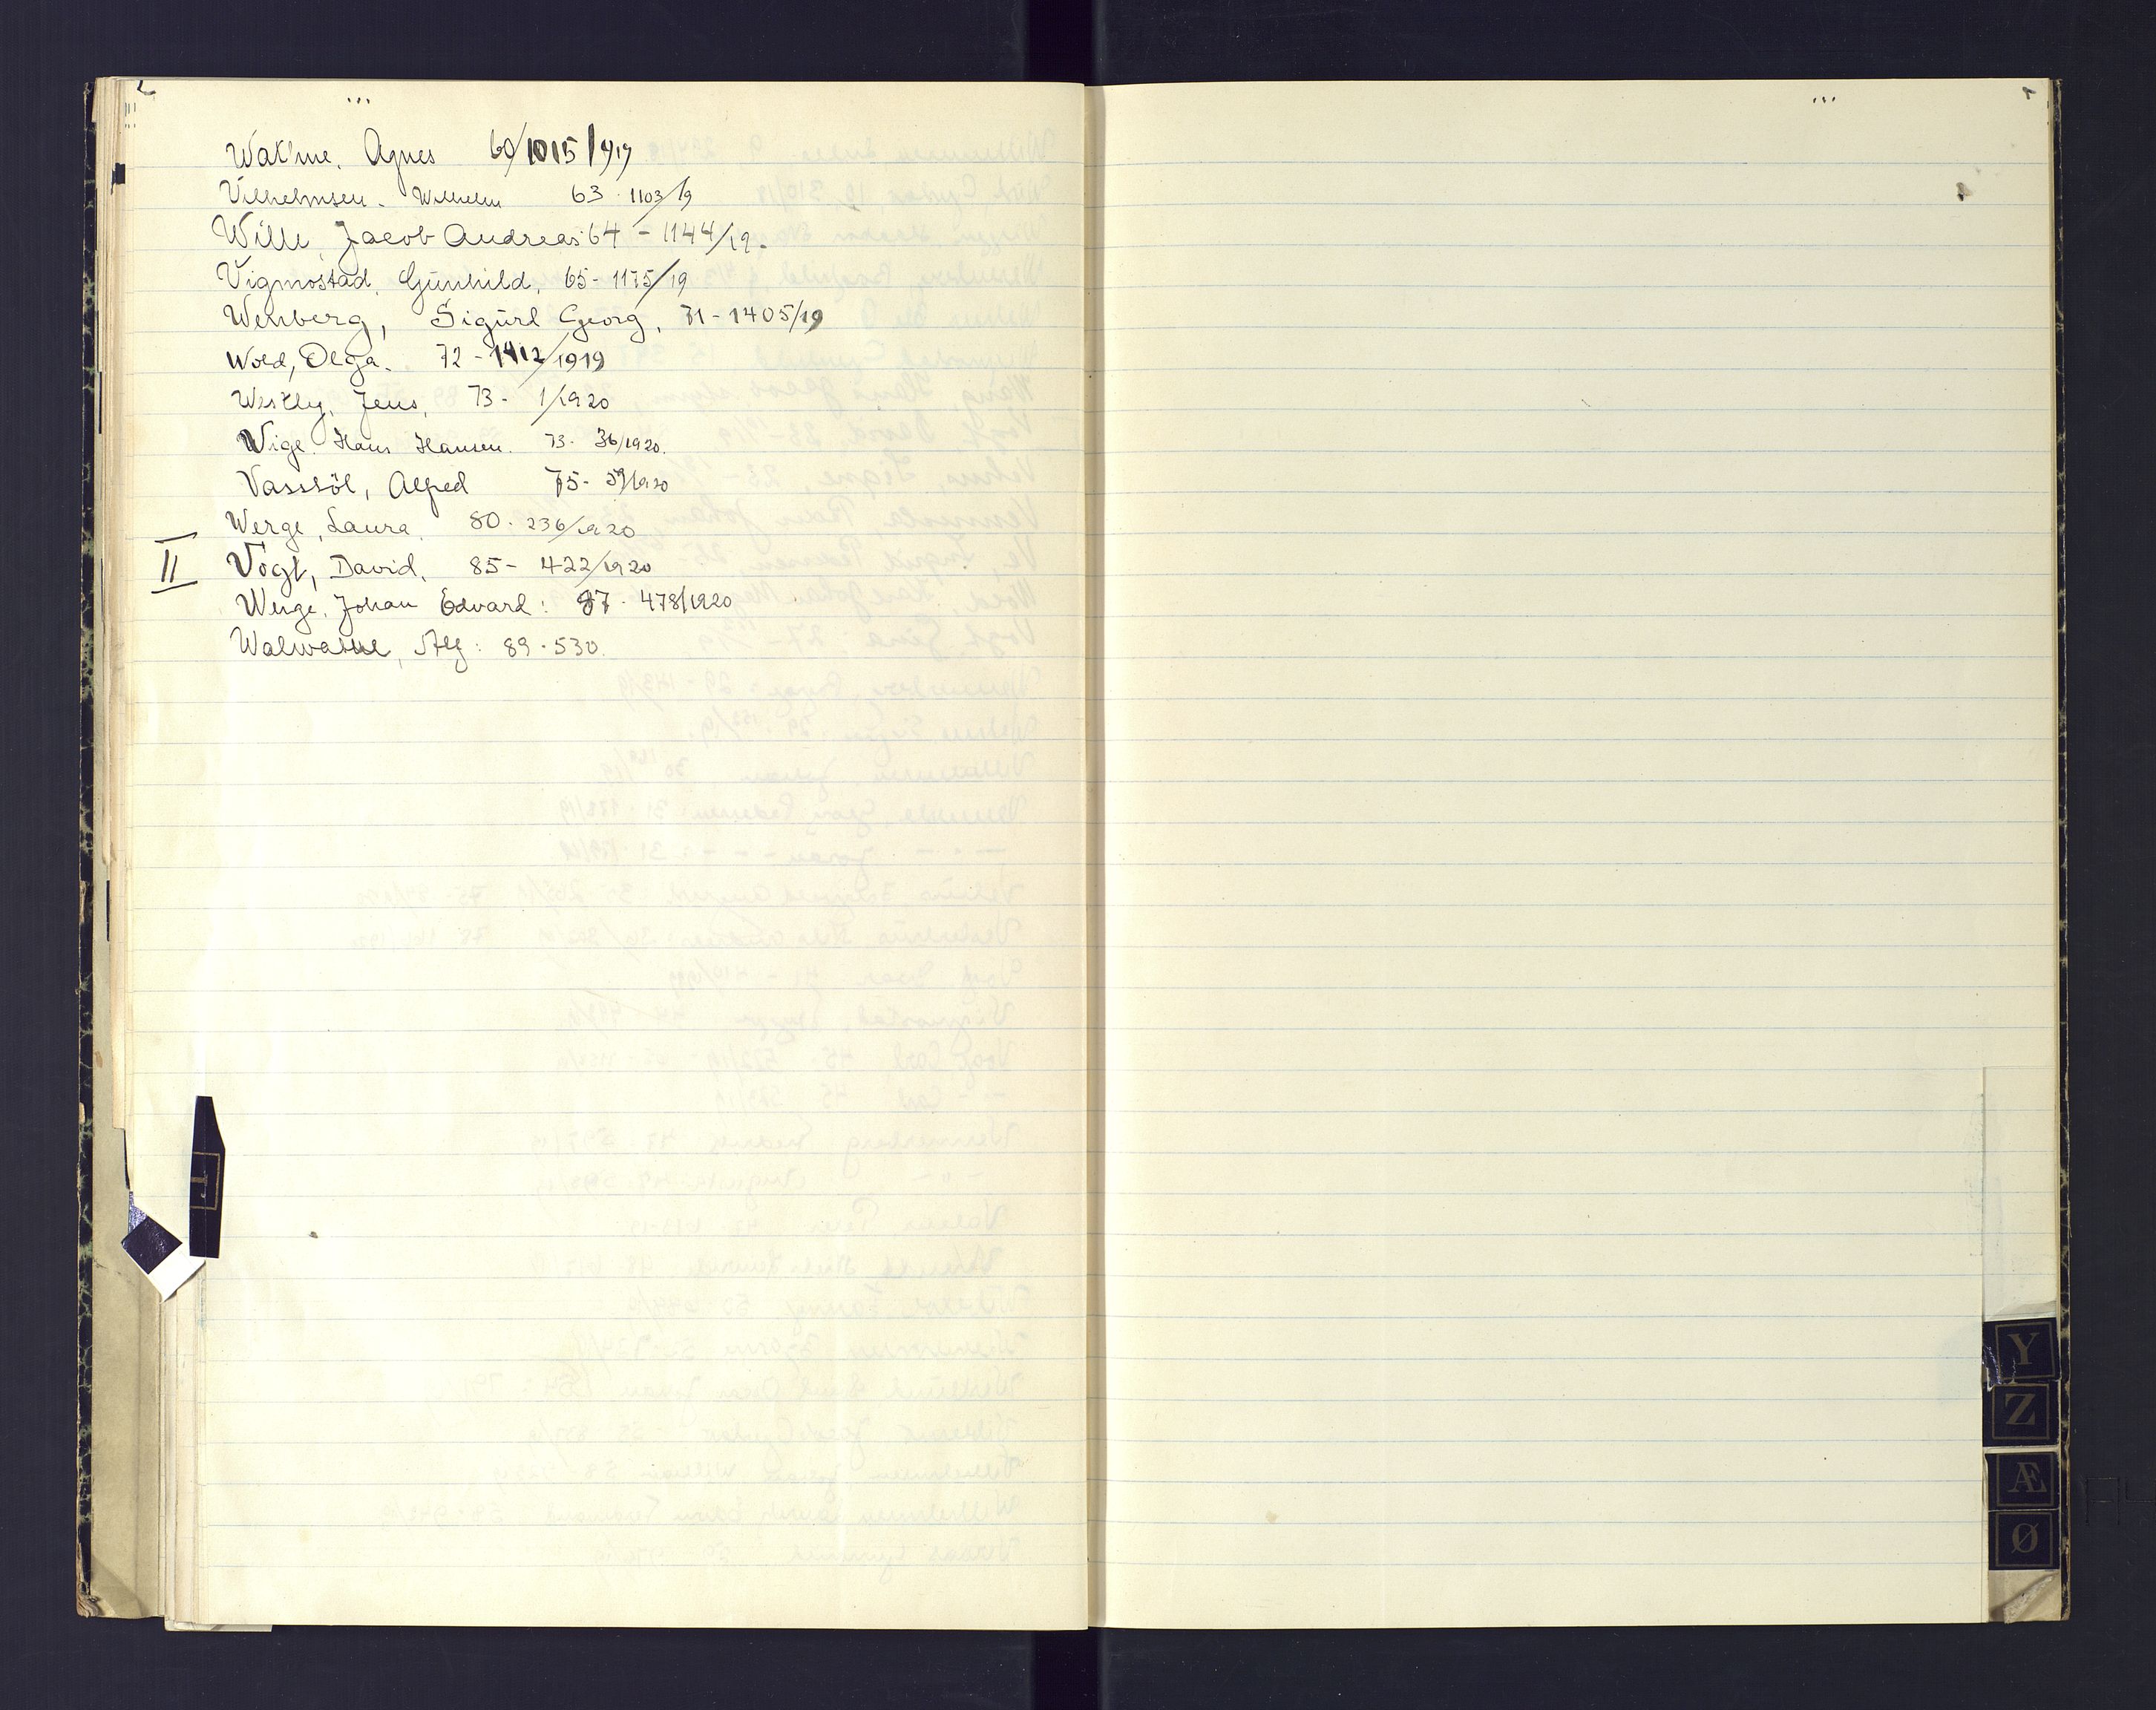 Watne, Agnes 60/1015/1919
Vilhelmsen. Wilhelm 63 - 1103/19
Wille, Jacob Andreas 64 - 1144/19.
Vigmostad, Gunhild, 65 - 1175/19
Wenberg, Sigurd Georg, 71 - 1405/19
Wold, Olga. 72 - 1412/1919
Westly, Jens, 73 - 1/1920
Vige, Hans Hansen. 73 - 36/1920.
Vasstöl, Alfred 75 - 59/1920
Werge, Laura, 80 - 236/1920
II Vogt, David, 85 - 422/1920
Werge, Johan Edvard: 87 - 478/1920
Alf: 89 - 530.
T
Y
Z
Æ
Ø